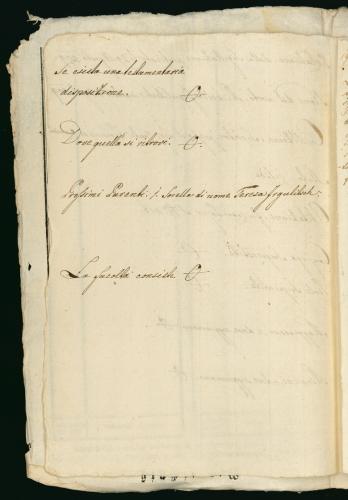 Se esista una testamentaria
disposizione. O.
Dove quella si ritrovi. O.
Prossimi Parenti. 1. Sorella di nome Teresa
La facoltà consiste O